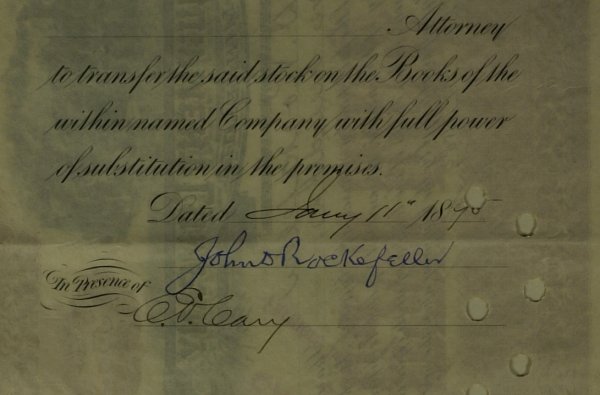 Attorney
to transfer the said stock on the Books of the
within named Company with full power
of substitution in the premises.
Dated Jany 11th 1895
John D Rockefeller
In Presence of